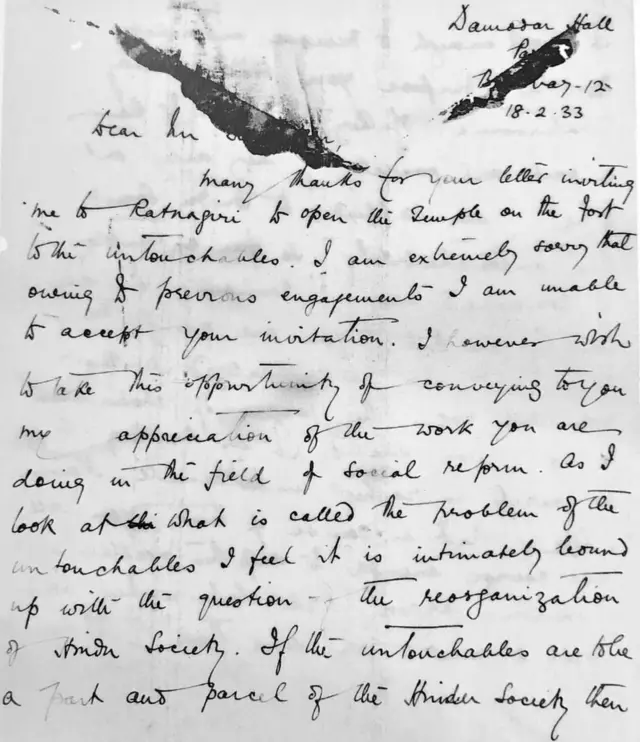 Damodar Hall
Pa
B vay-12
18.2.33
Dear Mr
many thanks for your letter inviting
me to Ratnagiri to open the Temple on the fort
to the untouchables. I am extremely sorry that
owing to previous engagements I am unable
to accept your invitation. I however wish
to take this opportunity of conveying to you
my appreciation of the work you are
doing in the field of social reform. As I
look at the what is called the problem of the
untouchables I feel it is intimately bound
up with the question - the reorganization
of Hindu Society. If the untouchables are to be
a part and parcel of the Hindu Society then